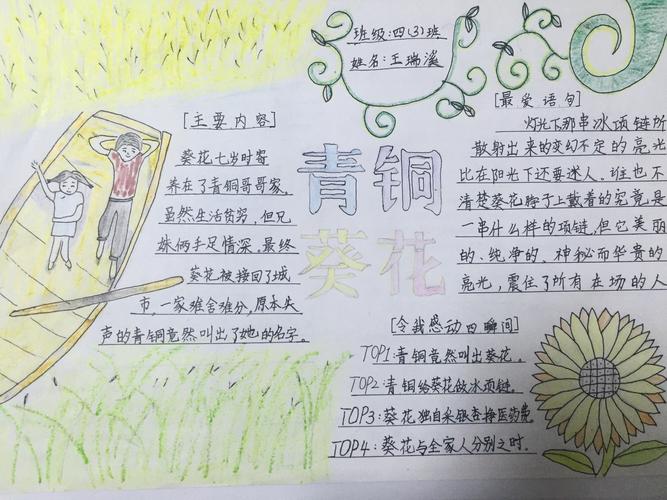 班级:四(3)班
姓名:王瑞溪
[主要内容]
葵花七岁时寄
养在了青铜哥哥家,
虽然生活贫穷,但兄
妹俩手足情深。最终
葵花被接回了城
市,一家难舍难分,原本失
声的青铜竟然叫出了她的名字。
青铜
葵花
[最爱语句]
灯光下那串冰项链所
散射出来的变幻不定的亮光
比在阳光下还要迷人。谁也不
清楚葵花脖子上戴着的究竟是
一串什么样的项链,但它美丽
的、纯净的、神秘而华贵的
亮光,震住了所有在场的人
[令我感动四瞬间]
TOP1:青铜竟然叫出葵花。
TOP2:青铜给葵花做冰项链。
TOP3:葵花独自采银杏挣医药费
TOP4:葵花与全家人分别之时.